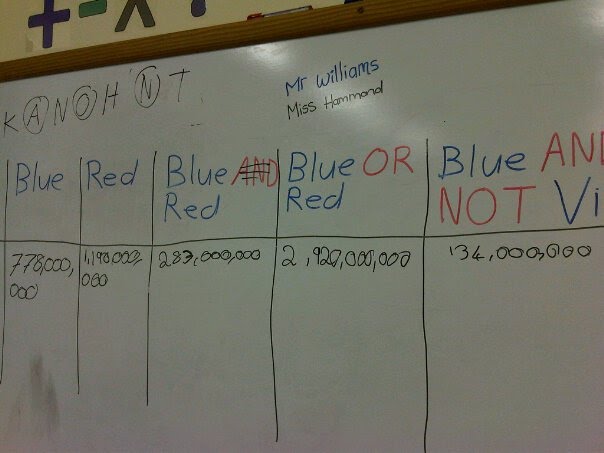 K A N O H N T
Mr Williams
Miss Hammond
Blue
Red
Blue AND
Red
Blue OR
Red
Blue AND
NOT Vi
778,000,
000
1,190,000,
000
283,000,000
2,920,000,000
134,000,000